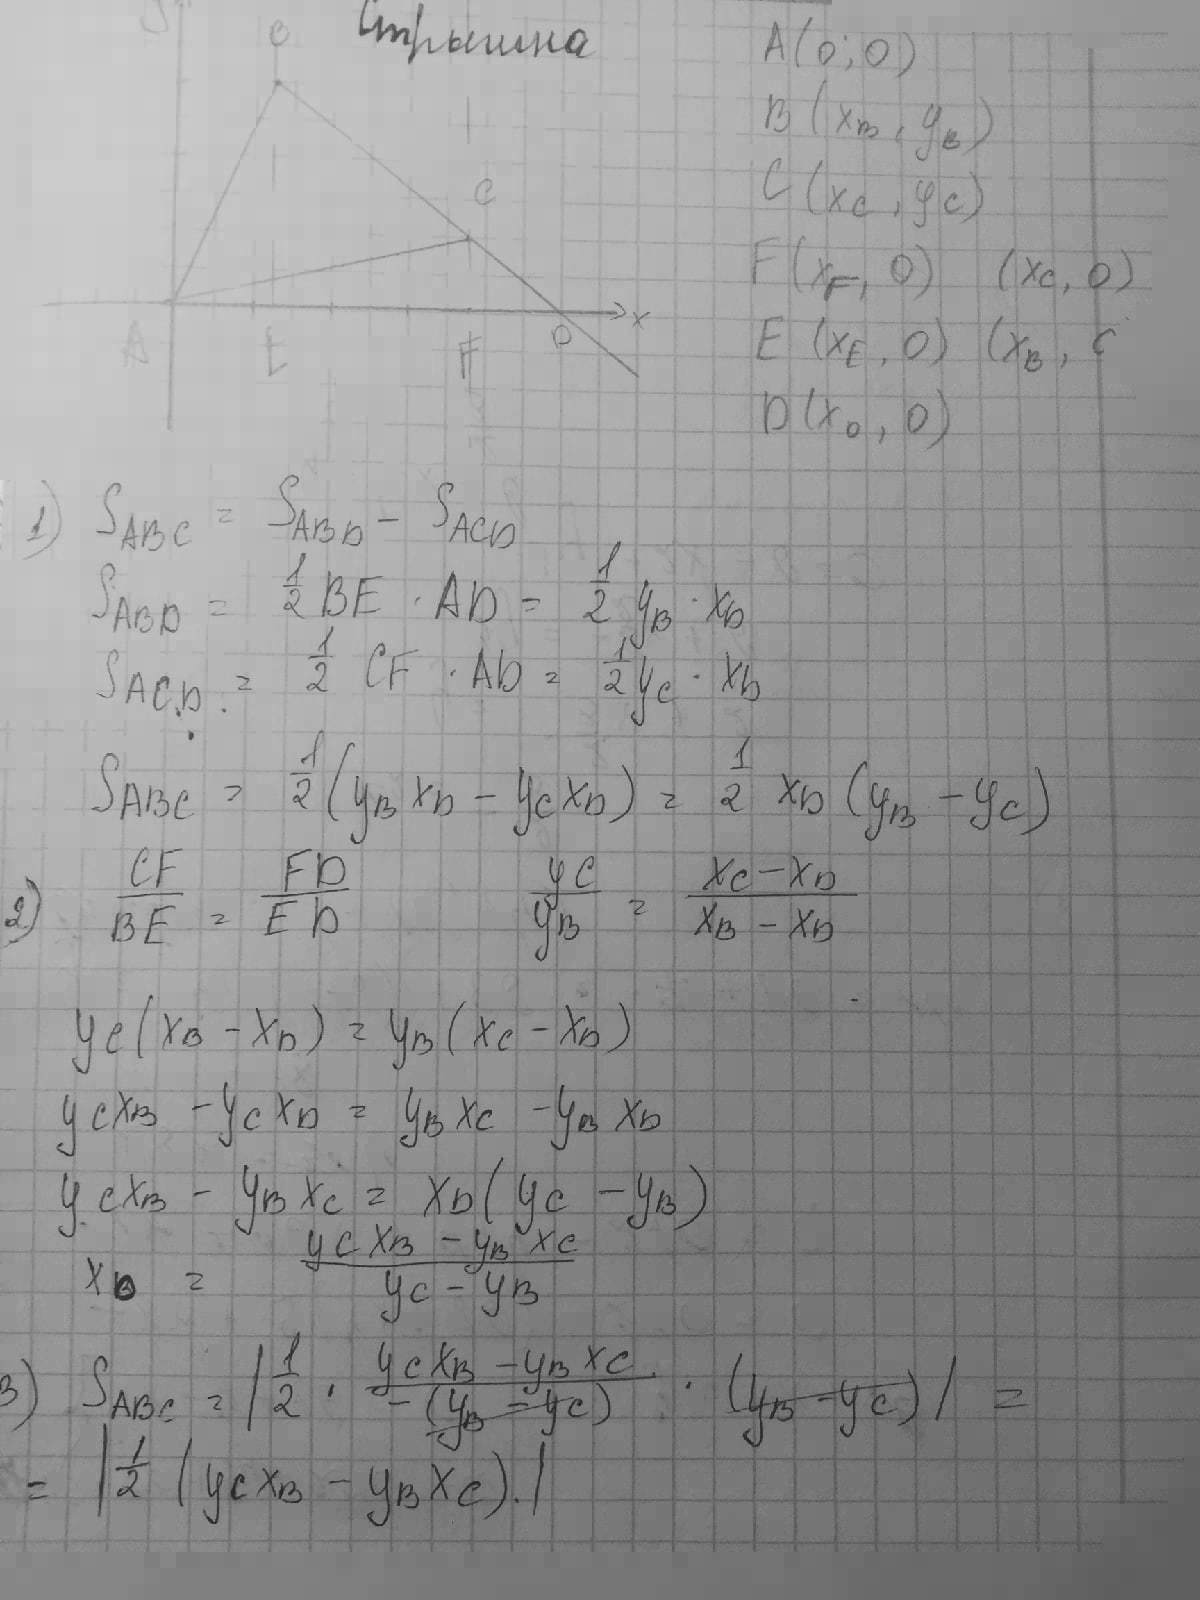 Стрыгина
y
B
C
x
A
E
F
D
A(0;0)
B(x_B, y_B)
C(x_C, y_C)
F(x_F, 0) (x_C, 0)
E(x_E, 0) (x_B,
D(x_D, 0)
1) S_ABC = S_ABD - S_ACD
S_ABD = 1/2 BE · AD = 1/2 y_B · x_D
S_ACD = 1/2 CF · AD = 1/2 y_C · x_D
S_ABC = 1/2 (y_B x_D - y_C x_D) = 1/2 x_D (y_B - y_C)
2) CF/BE = FD/ED y_C/y_B = (x_C - x_D)/(x_B - x_D)
y_C(x_B - x_D) = y_B(x_C - x_D)
y_C x_B - y_C x_D = y_B x_C - y_B x_D
y_C x_B - y_B x_C = x_D(y_C - y_B)
x_D = (y_C x_B - y_B x_C)/(y_C - y_B)
3) S_ABC = |1/2 · (y_C x_B - y_B x_C)/(-(y_B - y_C)) · (y_B - y_C)| =
= |1/2 (y_C x_B - y_B x_C).|